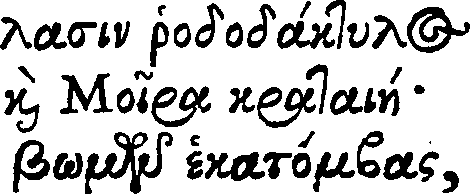 λασιν ῥοδοδάκτυλος
καὶ Μοῖρα κραταιή·
βωμοῦ ἑκατόμβας,